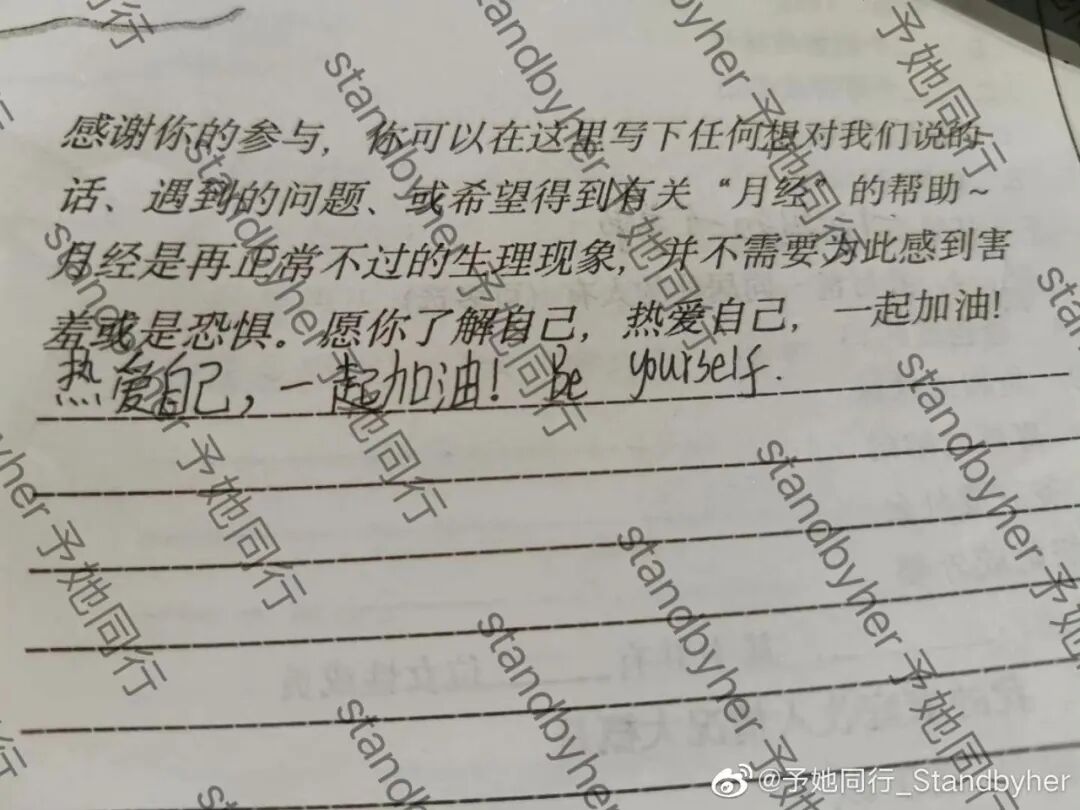 感谢你的参与，你可以在这里写下任何想对我们说的
话、遇到的问题、或希望得到有关“月经”的帮助~
月经是再正常不过的生理现象，并不需要为此感到害
羞或是恐惧。愿你了解自己，热爱自己，一起加油!
热爱自己，一起加油! Be yourself.
standbyher 予她同行
@予她同行_Standbyher